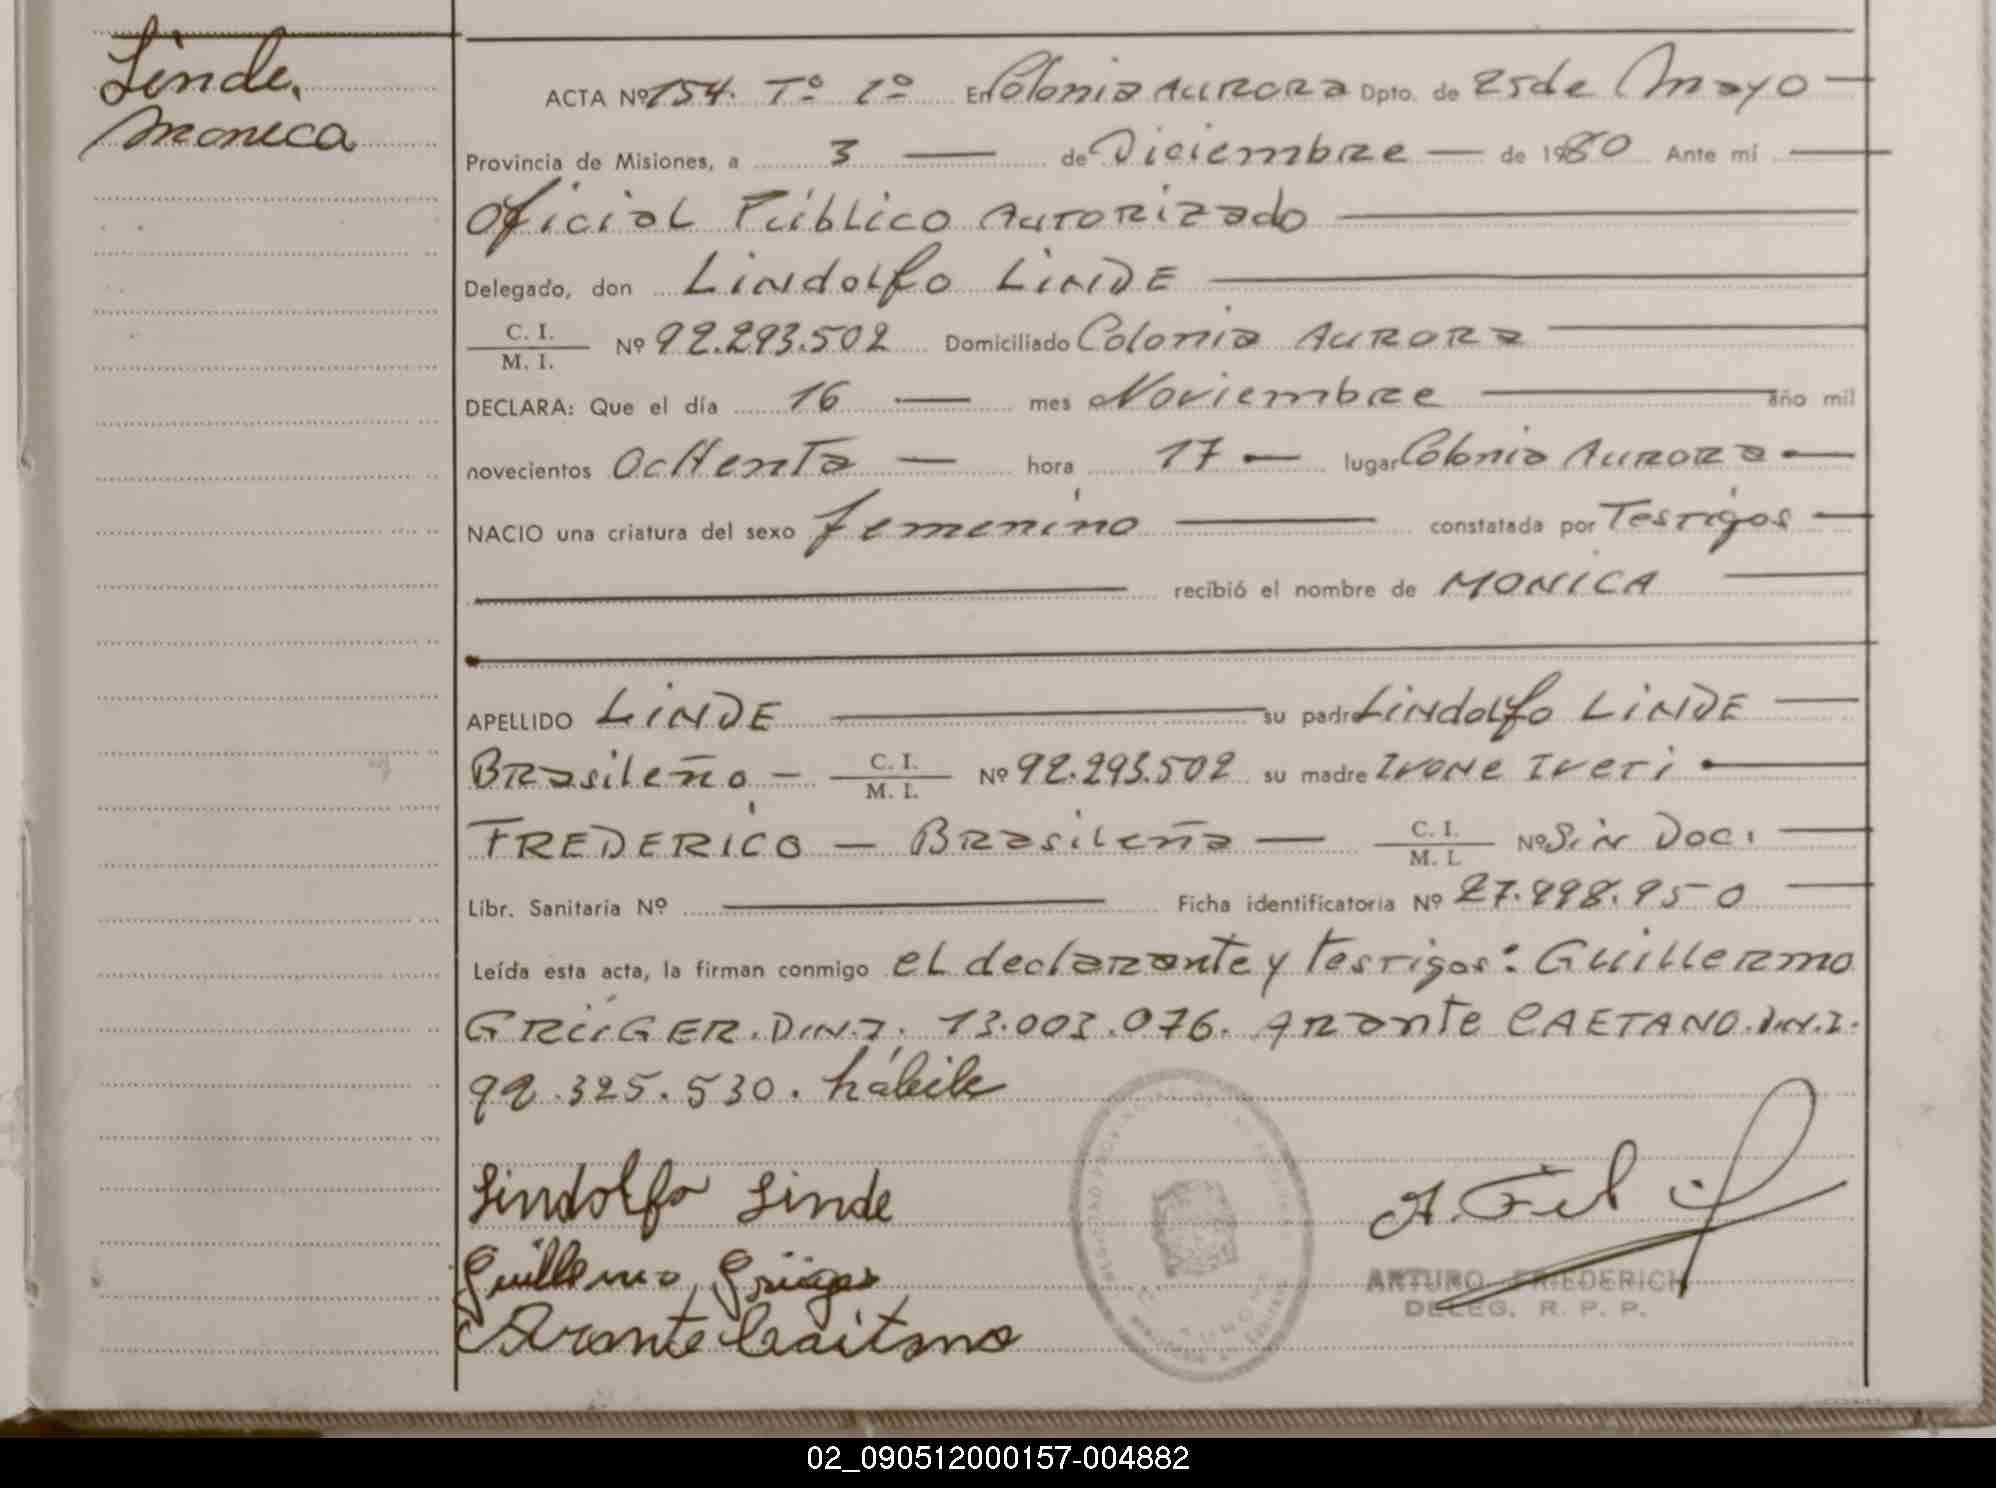 Linde,
Monica
ACTA Nº 154. Tº 1º En Colonia Aurora Dpto. de 25 de Mayo
Provincia de Misiones, a 3 de Diciembre de 1980 Ante mí
Oficial Público Autorizado
Delegado, don Lindolfo LINDE
C. I. / M. I. Nº 92.293.502 Domiciliado Colonia Aurora
DECLARA: Que el día 16 mes Noviembre año mil
novecientos ochenta hora 17 lugar Colonia Aurora
NACIO una criatura del sexo femenino constatada por Testigos
recibió el nombre de MONICA
APELLIDO LINDE su padre Lindolfo LINDE
Brasileño C. I. / M. I. Nº 92.293.502 su madre Ivone Iveti
FREDERICO Brasileña C. I. / M. I. Nº Sin Doc.
Libr. Sanitaria Nº Ficha identificatoria Nº 27.998.950
Leída esta acta, la firman conmigo el declarante y testigos: Guillermo
GRÜGER. D.N.I. 13.003.076. Arante CAETANO. D.N.I.
92.325.530. hábile
Lindolfo Linde
Guillermo Grüger
Arante Caitano
ARTURO FRIEDERICH
DELEG. R. P. P.
02_090512000157-004882